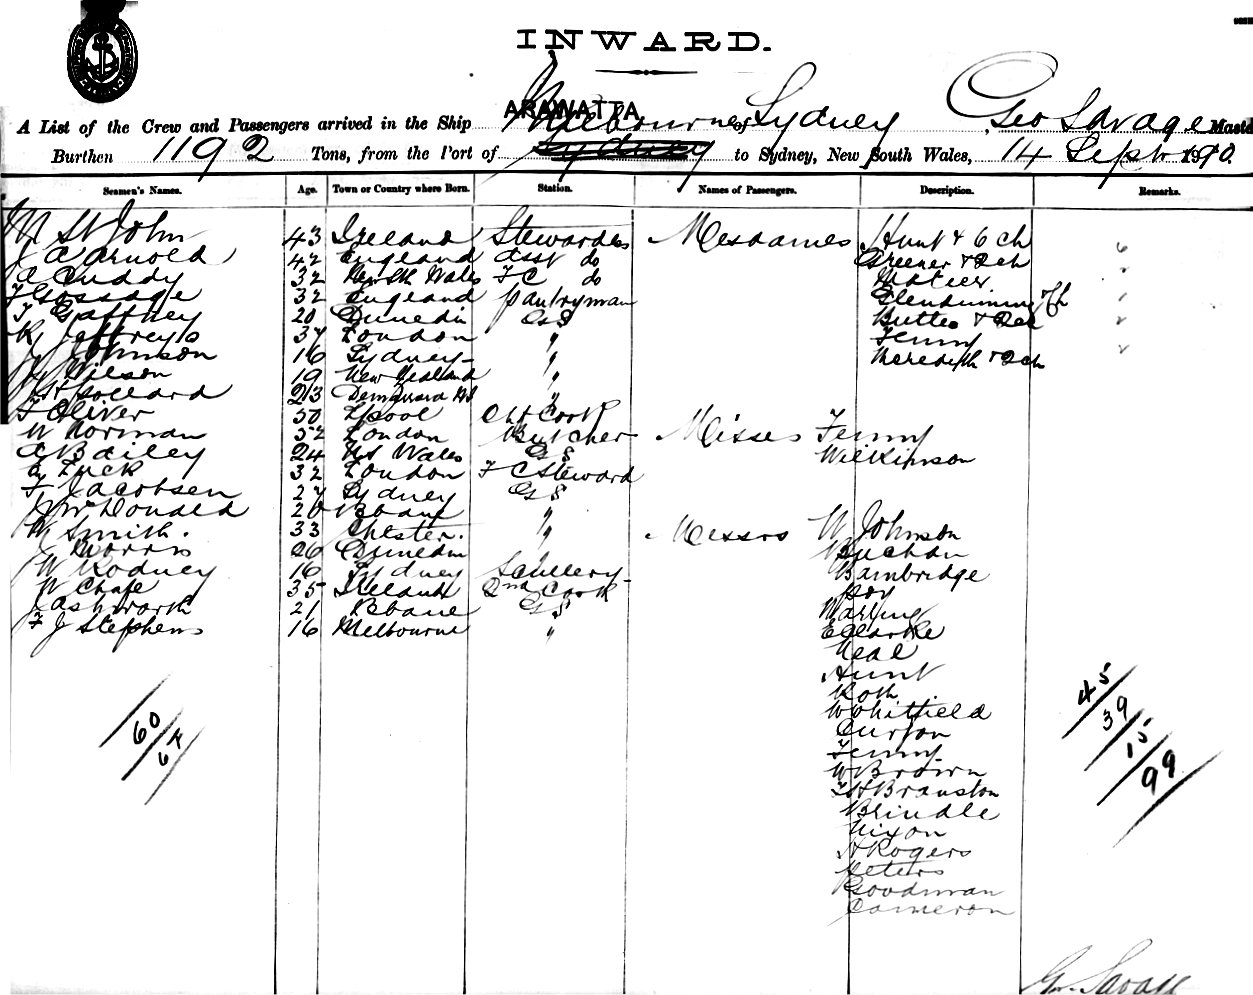 INWARD.
A List of the Crew and Passengers arrived in the Ship ARAWATTA of Sydney, Geo Savage Maste
Burthen 1192 Tons, from the Port of Melbourne to Sydney, New South Wales, 14 Sept 1890.
Seamen's Names. Age. Town or Country where Born. Station. Names of Passengers. Description. Remarks.
M St John 43 Ireland Stewardess Mesdames Hunt & 6 ch 6
A Arnold 42 England Asst do Greener & 2ch
A Cuddy 32 New Sth Wales FC do Mateer
F Gossage 32 England Pantryman Glendinning
T Gaffney 20 Dunedin GS Butler &
R Jeffreys 37 London " Fenny
Johnson 16 Sydney " Meredyth & 2ch
Wilson 19 New Zealand "
Pollard 23 "
F Oliver 50 Lpool Cook
W Norman 52 London Butcher Misses Fenny
A Bailey 24 NS Wales GS Wilkinson
Tuck 32 London F C Steward
F Jacobsen 27 Sydney GS
McDonald 20 Bbane "
W Smith. 33 Chester. " Messrs W Johnson
Morris 26 Dunedin Buchan
W Rodney 16 Sydney Scullery Bambridge
W Chape 35 Ireland 2nd Cook
J Ashworth 21 Bbane GS
F J Stephens 16 Melbourne " E Clarke
Neal
Hunt
Roth
W Whitfield
Curson
Fenny
W Brown
Branston
Brindle
Nixon
H Rogers
Peters
Goodman
Cameron
60
64
45
39
15
99
Geo. Savage